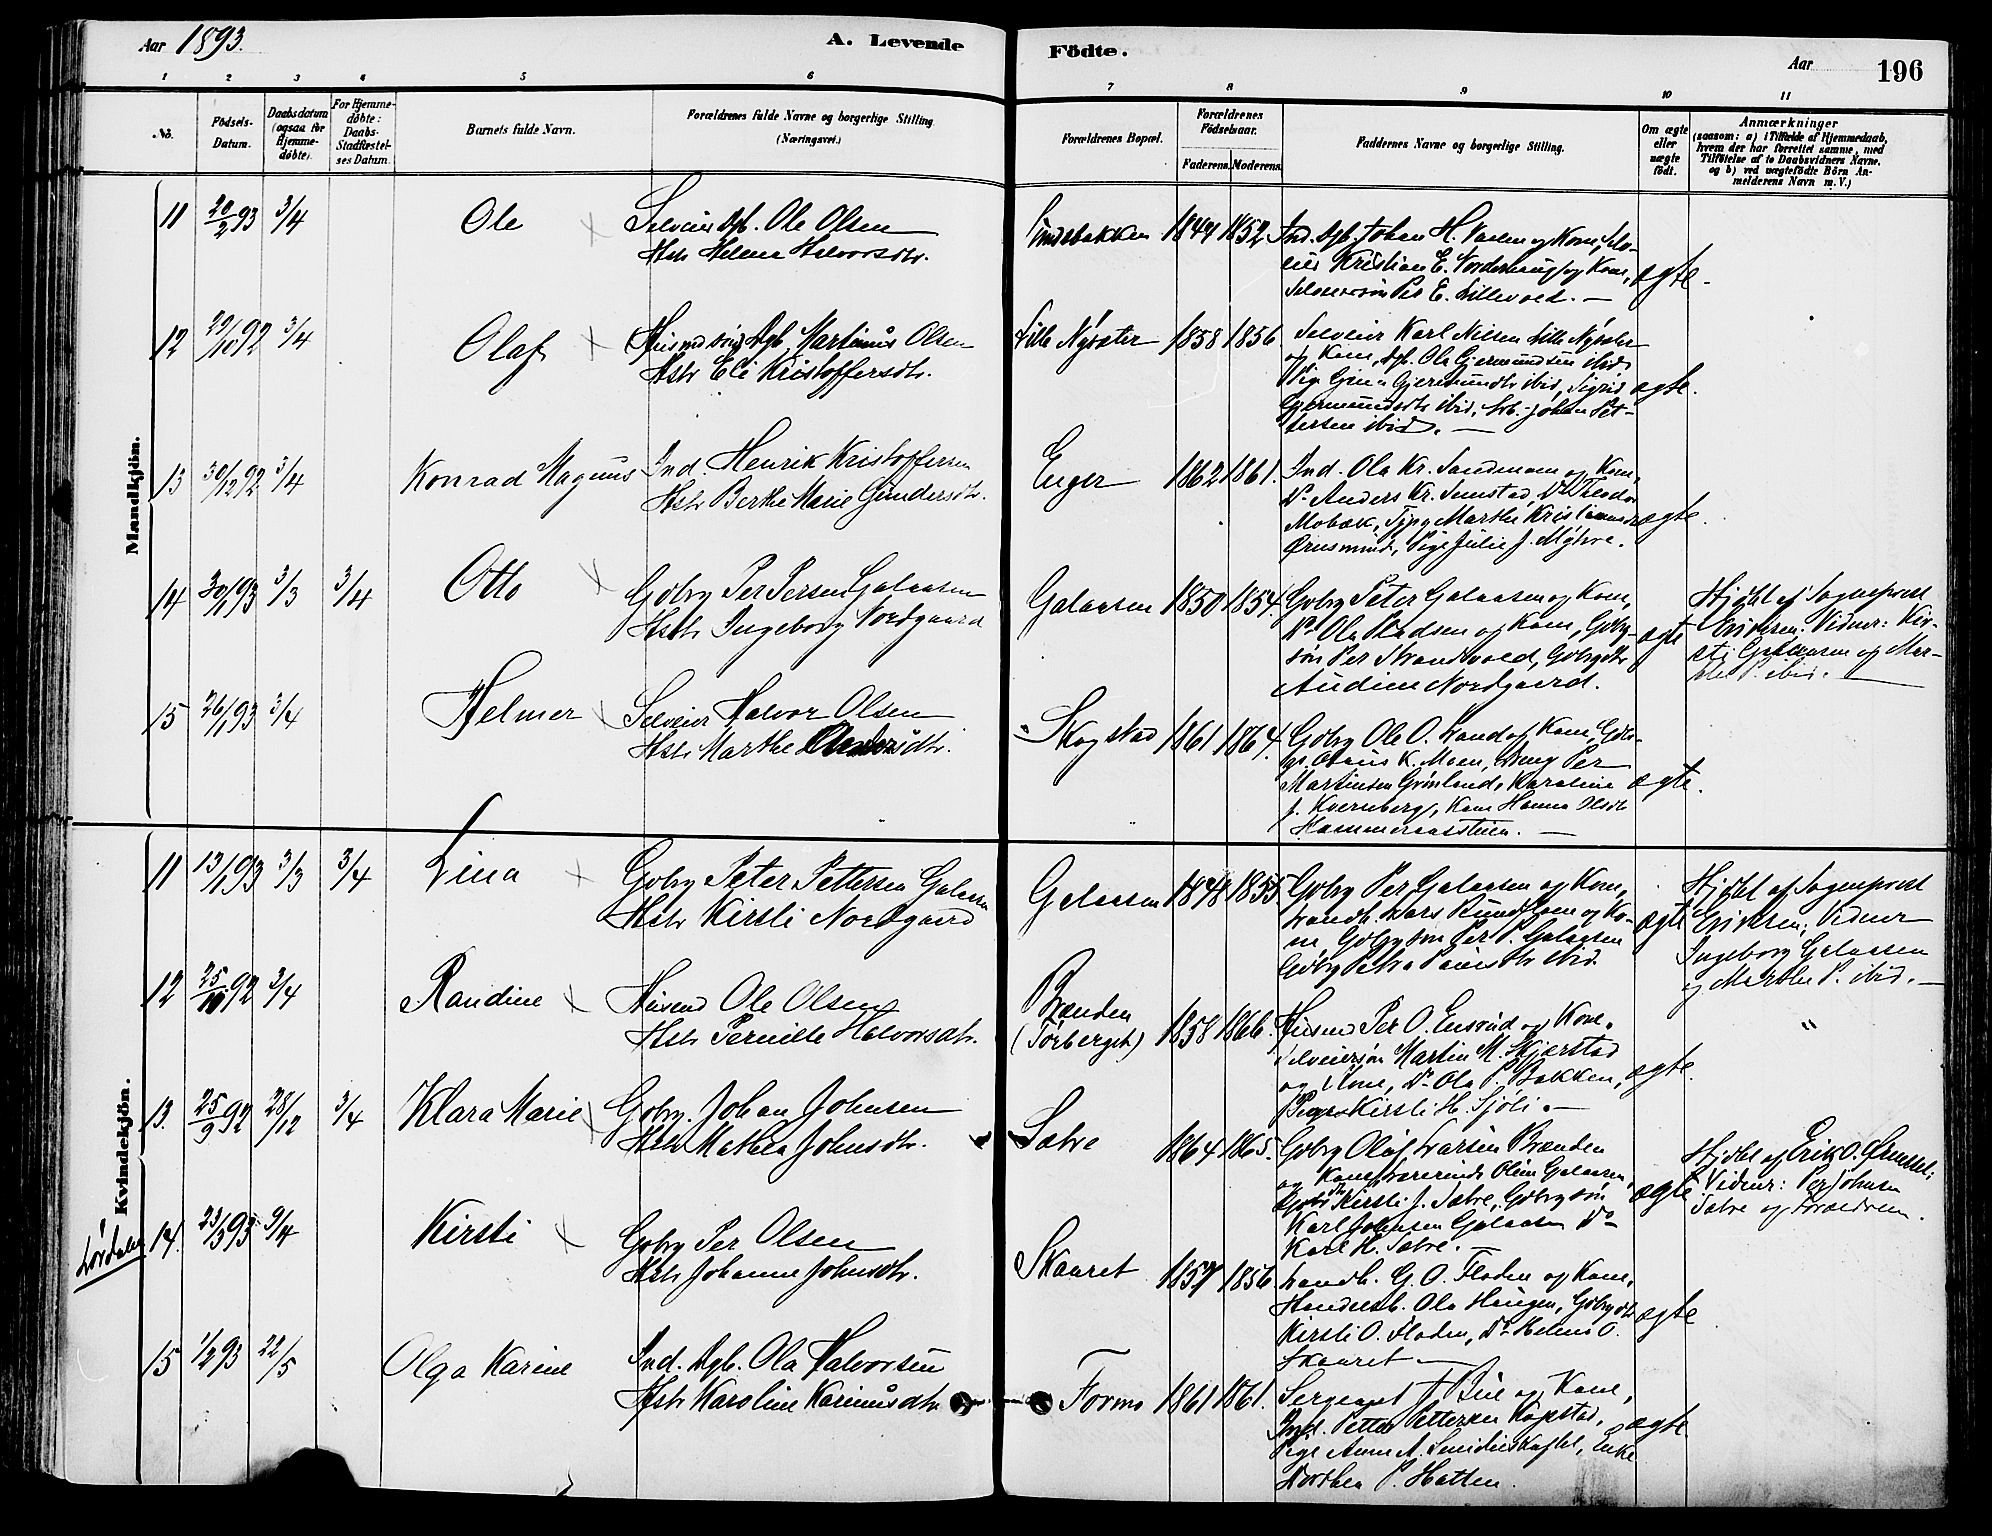 Aar 1893.
A. Levende
Födte.
Aar
196
1 2 3 4 5 6 7 8 9 10 11
No.
Födsels-
Datum.
Daabsdatum
(ogsaa for
Hjemme-
døbte).
For Hjemme-
døbte:
Daabs-
Stadfæstel-
ses Datum.
Barnets fulde Navn.
Forældrenes fulde Navne og borgerlige Stilling
(Næringsvei.)
Forældrenes Bopæl.
Forældrenes
Födselsaar.
Faderens. Moderens.
Faddernes Navne og borgerlige Stilling.
Om ægte
eller
uægte
födt.
Anmærkninger
(saasom: a) i Tilfælde af Hjemmedaab,
hvem der har forrettet samme, med
Tilföielse af to Daabsvidners Navne.
og b) ved uægtefödte Börn An-
melderens Navn m. V.)
Mandkjön.
11 20/2 93 3/4 Ole
Selveier Dgb. Ole Olsen
Hstr Helene Halvorsdtr.
1844 1852
Ind. Dgb. Johan H. og Kone, Selv-
eier Kristian E. og Kone,
Selveiersøn Per E. Lillevold. —
ægte.
12 29/10 92 3/4 Olaf
Husmdsøn Dgb. Martinus Olsen
Hstr Eli Kristoffersdtr.
Lille Nysæter 1858 1856
Selveier Karl Nilsen Lille Nysæter
og Kone, Dgb. Ola Gjermundsen ibid.
Pige Gjermundsdtr ibid, Sigrid
Gjermundsdtr ibid, Arb. Johan Pet-
tersen ibid. —
ægte.
13 30/12 92 3/4 Konrad Magnus
Ind. Henrik Kristoffersen
Hstr Berthe Marie Gundersdtr.
Enger 1862 1861.
Ind. Ola Kr. Sandmoen og Kone,
Do Anders Kr. Semstad, Do
Mobæk, Marthe
Pige Julie J. Myhre.
ægte.
14 30/1 93 3/3 3/4 Otto
Gdbrg Per Persen Galaasen
Hstr Ingeborg Nordgaard
Galaasen 1850 1854.
Gdbrg Peter Galaasen og Kone,
Do Ola og Kone, Gdbrg-
søn Per Strandvold, Gdbrgdtr
Audine Nordgaard.
ægte
Hjdøbt af Sogneprest
Eriksen: Vidner: Kir-
sti Galaasen og Mar-
the P. ibid. —
15 26/1 93 3/4 Helmer
Selveier Halvor Olsen
Hstr Marthe
Skogstad 1861 1864.
Gdbrg Ole O. og Kone, Gdb-
K. Moen, Dreng Per
Martinsen Grönland, Karoline
J. Kvernberg, Kone Hanna
Hammeraasteien. —
ægte.
Kvindekjön.
11 13/1 93 3/3 3/4 Lina
Gdbrg Peter Pettersen Galaasen
Hstr Kirsti Nordgaard
Galaasen 1848 1855.
Gdbrg Per Galaasen og Kone,
Landh. Lars og Ko-
ne, Gdbrgsøn Per P. Galaasen
Gdbrg Petra ibid.
ægte
Hjdøbt af Sogneprest
Eriksen; Vidner
Ingeborg Galaasen
og Marthe P. ibid. —
12 25/10 92 3/4 Randine
Husmd Ole Olsen
Hstr Pernille Halvorsdtr.
Brænden
(Törberget) 1858 1866.
Husmd Per O. Ensrud og Kone.
Selveiersøn Martin M. Skjærstad
og Kone, Do Ola P. Bakken,
Pige Kirsti H. Sjöli. —
ægte.
"
13. 25/9 92 28/12 3/4 Klara Marie
Gdbrg. Johan Johnsen
Hstr Mathea Johnsdtr.
Sætre 1864 1865.
Gdbrg Olaf Larsen Brænden
og Kone, Oline Galaasen,
Kirsti J. Sætre, Gdbrgsøn
Karl Johnsen Galaasen Do
Karl H. Sætre. —
ægte
Hjdøbt af Erik O.
Vidner: Per Johnsen
Sætre og Forældrene.
Lördalen
14. 23/3 93 9/4 Kirsti
Gdbrg Per Olsen
Hstr Johanne Johnsdtr.
Skaaret 1857 1856.
Landh. G. O. Floden og Kone,
Handelsb. Ola Haugen, Gdbrgdtr
Kirsti O. Floden, Do Helene O.
Skaaret —
ægte
15 1/2 93 22/5 Olga Karine
Ind. Dgb. Ola Halvorsen
Hstr Karoline Karinusdtr
Formo 1861 1861.
Sergeant J. Bue og Kone,
Ind. Petter Pettersen Kopstad,
Pige Anne A. Smedieskaftet, Enke
Dorthea P. Hatten.
ægte